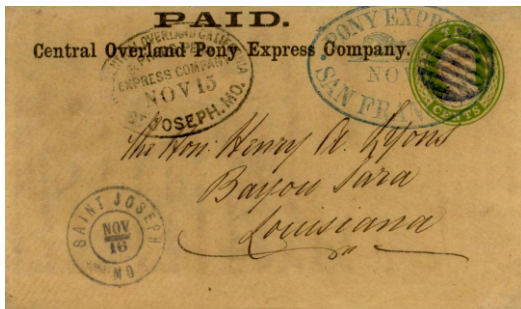 PAID.
Central Overland Pony Express Company.
OVERLAND CALIFORNIA
EXPRESS COMPANY
NOV 15
ST JOSEPH. MO.
PONY EXPRESS
NOV
SAN FRAN
TEN
CENTS
The Hon: Henry A. Lyons
Bayou Sara
Louisiana
SAINT JOSEPH
NOV
16
MO